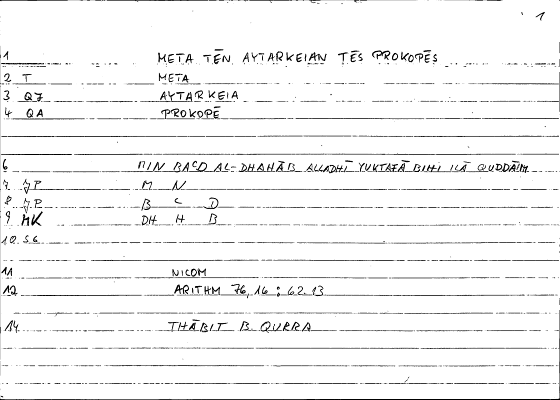 1
1 META TĒN AYTARKEIAN TĒS PROKOPĒS
2 T META
3 QJ AYTARKEIA
4 QA PROKOPĒ
6 MIN BAʿD AL-DHAHĀB ALLADHĪ YUKTAFĀ BIHI ILĀ QUDDĀIM
7 JP M N
8 JP B ʿ D
9 MK DH H B
10 S6
11 NICOM
12 ARITHM 76,16 : 62.13
14 THĀBIT B. QURRA